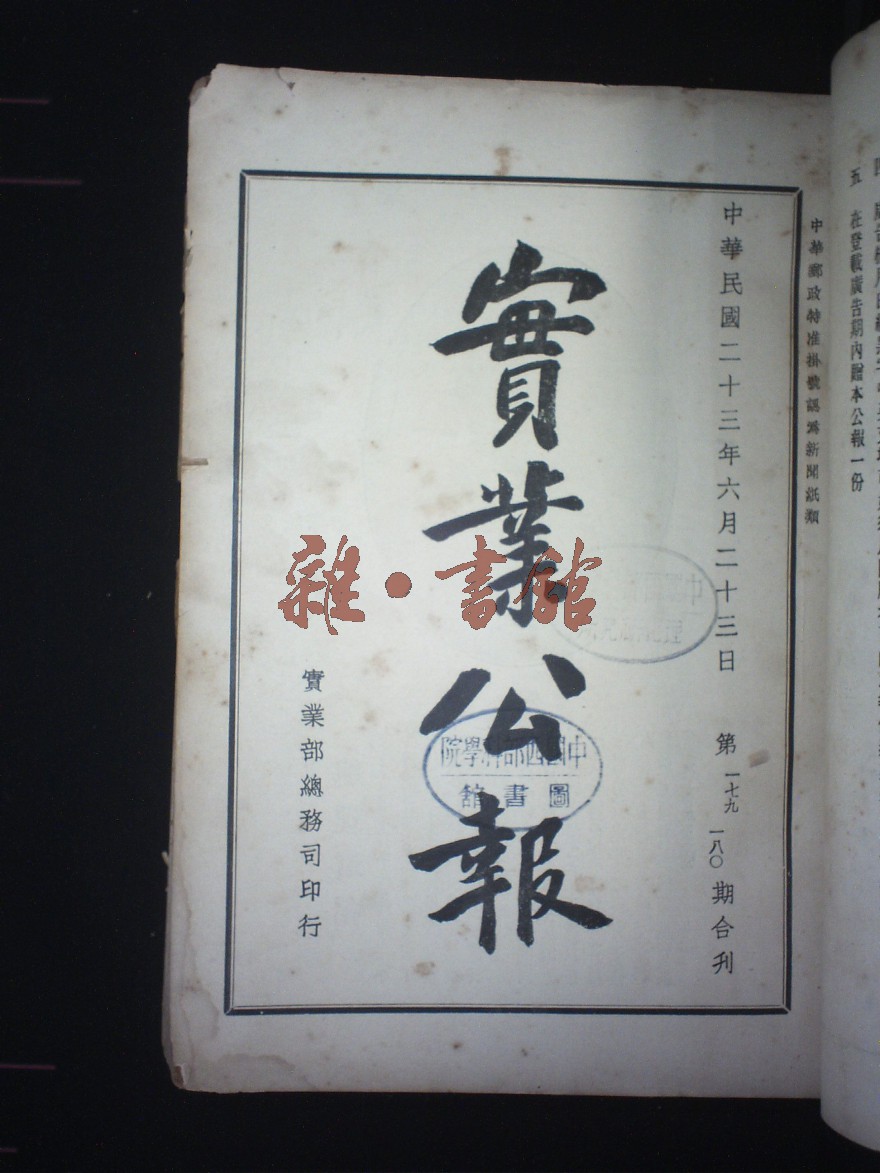 五 在登載廣告期內贈本公報一份
中華郵政特准掛號認為新聞紙類
中華民國二十三年六月二十三日 第一七九 一八〇期合刊
實業公報
實業部總務司印行
雜·書館
中國西部科學院
圖書館